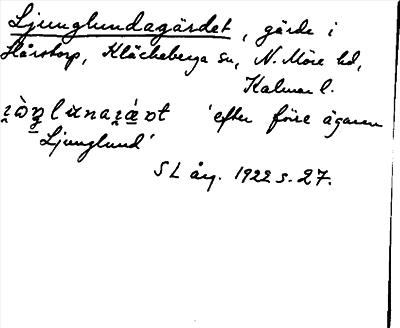 Ljunglundagärdet, gärde i
Hårstorp, Kläckeberga sn, N. Möre hd,
Kalmar l.
'efter förre ägaren
Ljunglund'
SL åy. 1922 s. 27.